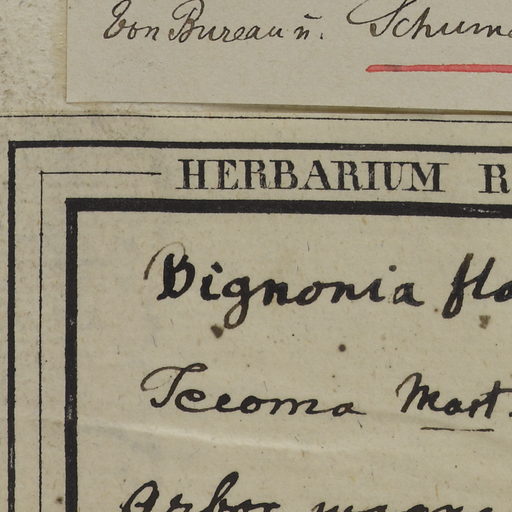 von Bureau u. Schum
HERBARIUM R
Bignonia fla
Tecoma Mart.
Arbor magna